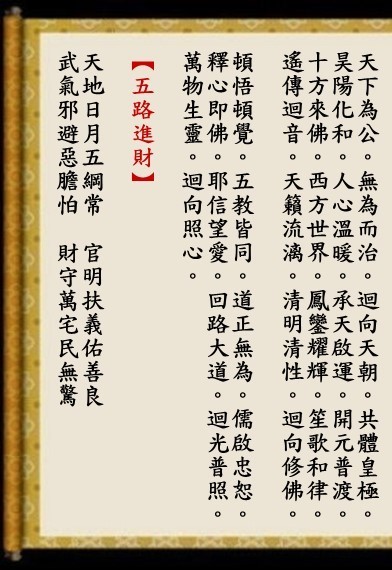 天下為公。無為而治。迴向天朝。共體皇極。
昊陽化和。人心溫暖。承天啟運。開元普渡。
十方來佛。西方世界。鳳鑾耀輝。笙歌和律。
遙傳迴音。天籟流漓。清明清性。迴向修佛。
頓悟頓覺。五教皆同。道正無為。儒啟忠恕。
釋心即佛。耶信望愛。回路大道。迴光普照。
萬物生靈。迴向照心。
【五路進財】
天地日月五綱常 官明扶義佑善良
武氣邪避惡膽怕 財守萬宅民無驚